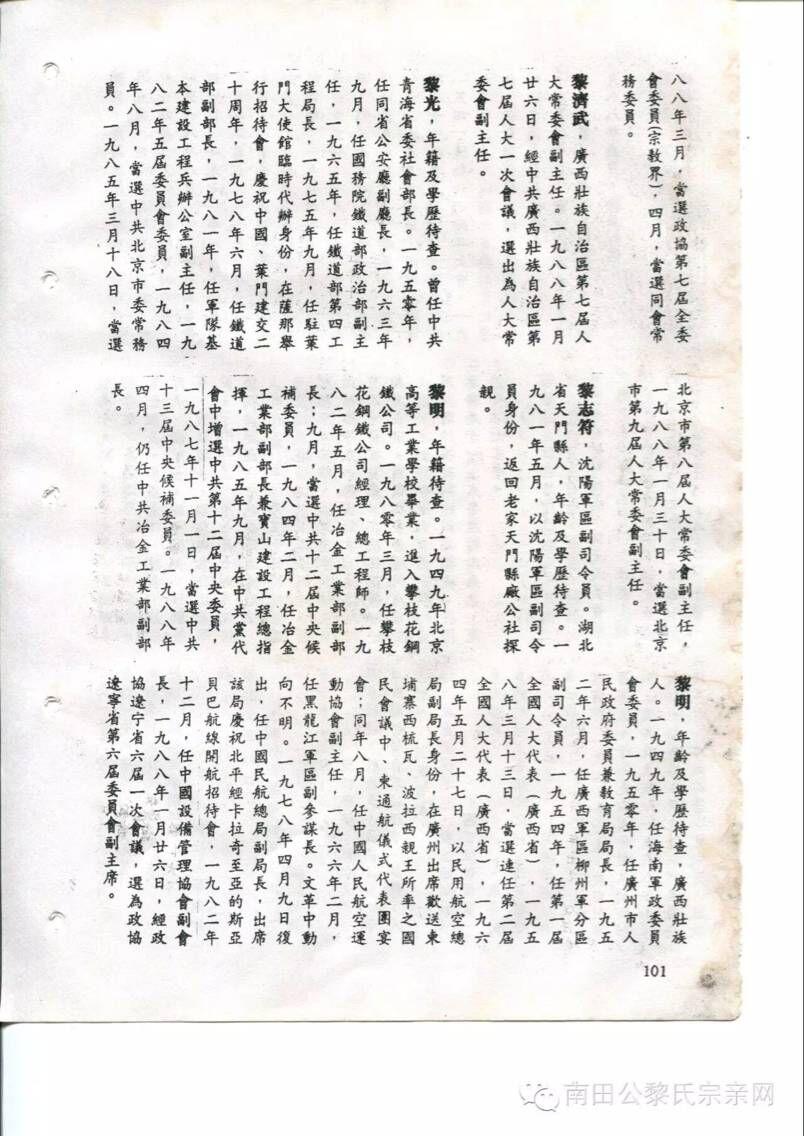 八八年三月，當選政協第七屆全委
會委員（宗教界），四月，當選同會常
務委員。
黎濟武，廣西壯族自治區第七屆人
大常委會副主任。一九八八年一月
廿六日，經中共廣西壯族自治區第
七屆人大一次會議，選出為人大常
委會副主任。
黎光，年籍及學歷待查。曾任中共
青海省委社會部長。一九五零年，
任同省公安廳副廳長，一九六三年
九月，任國務院鐵道部政治部副主
任，一九六五年，任鐵道部第四工
程局長，一九七五年九月，任駐葉
門大使館臨時代辦身份，在薩那舉
行招待會，慶祝中國、葉門建交二
十周年，一九七八年六月，任鐵道
部副部長，一九八一年，任軍隊基
本建設工程兵辦公室副主任，一九
八二年五屆委員會委員，一九八四
年八月，當選中共北京市委常務
員。一九八五年三月十八日，當選
北京市第八屆人大常委會副主任，
一九八八年一月三十日，當選北京
市第九屆人大常委會副主任。
黎志符，沈陽軍區副司令員。湖北
省天門縣人，年齡及學歷待查。一
九八一年五月，以沈陽軍區副司令
員身份，返回老家天門縣廠公社探
親。
黎明，年籍待查。一九四九年北京
高等工業學校畢業，進入攀枝花鋼
鐵公司。一九八零年三月，任攀枝
花鋼鐵公司經理、總工程師。一九
八二年五月，任冶金工業部副部
長；九月，當選中共十二屆中央候
補委員，一九八四年二月，任冶金
工業部副部長兼寶山建設工程總指
揮，一九八五年九月，在中共黨代
會中增選中共第十二屆中央委員，
一九八七年十一月一日，當選中共
十三屆中央候補委員。一九八八年
四月，仍任中共冶金工業部副部
長。
黎明，年齡及學歷待查，廣西壯族
人。一九四九年，任海南軍政委員
會委員，一九五零年，任廣州市人
民政府委員兼教育局局長，一九五
二年六月，任廣西軍區柳州軍分區
副司令員，一九五四年，任第一屆
全國人大代表（廣西省），一九五
八年三月十三日，當選連任第二屆
全國人大代表（廣西省），一九六
四年五月二十七日，以民用航空總
局副局長身份，在廣州出席歡送柬
埔寨西梳瓦、波拉西親王所率之國
民會議中、柬通航儀式代表團宴
會；同年八月，任中國人民航空運
動協會副主任，一九六六年二月，
任黑龍江軍區副參謀長。文革中動
向不明。一九七八年四月九日復
出，任中國民航總局副局長，出席
該局慶祝北平經卡拉奇至亞的斯亞
貝巴航線開航招待會，一九八二年
十二月，任中國設備管理協會副會
長，一九八八年一月廿六日，經政
協遼宁省六屆一次會議，選為政協
遼寧省第六屆委員會副主席。
101
南田公黎氏宗亲网